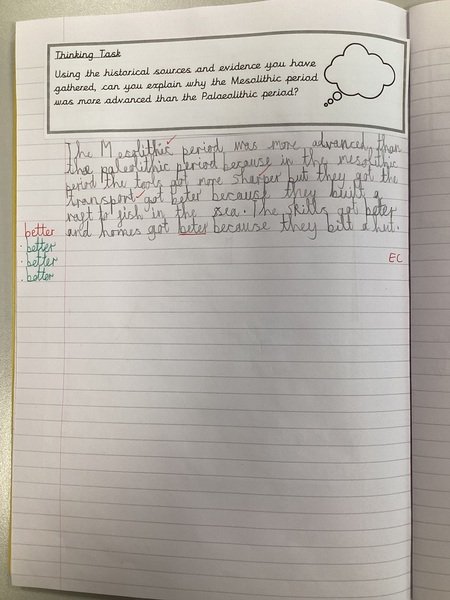 Thinking Task
Using the historical sources and evidence you have
gathered, can you explain why the Mesolithic period
was more advanced than the Palaeolithic period?
The Mesolithic period was more advanced than
the paleolithic period because in the mesolithic
period the tools got more sharper but they got the
transport got beter because they built a
raft to fish in the sea. The skills got beter
and homes got beter because they bilt a hut.
better
. better
. better
. better
EC